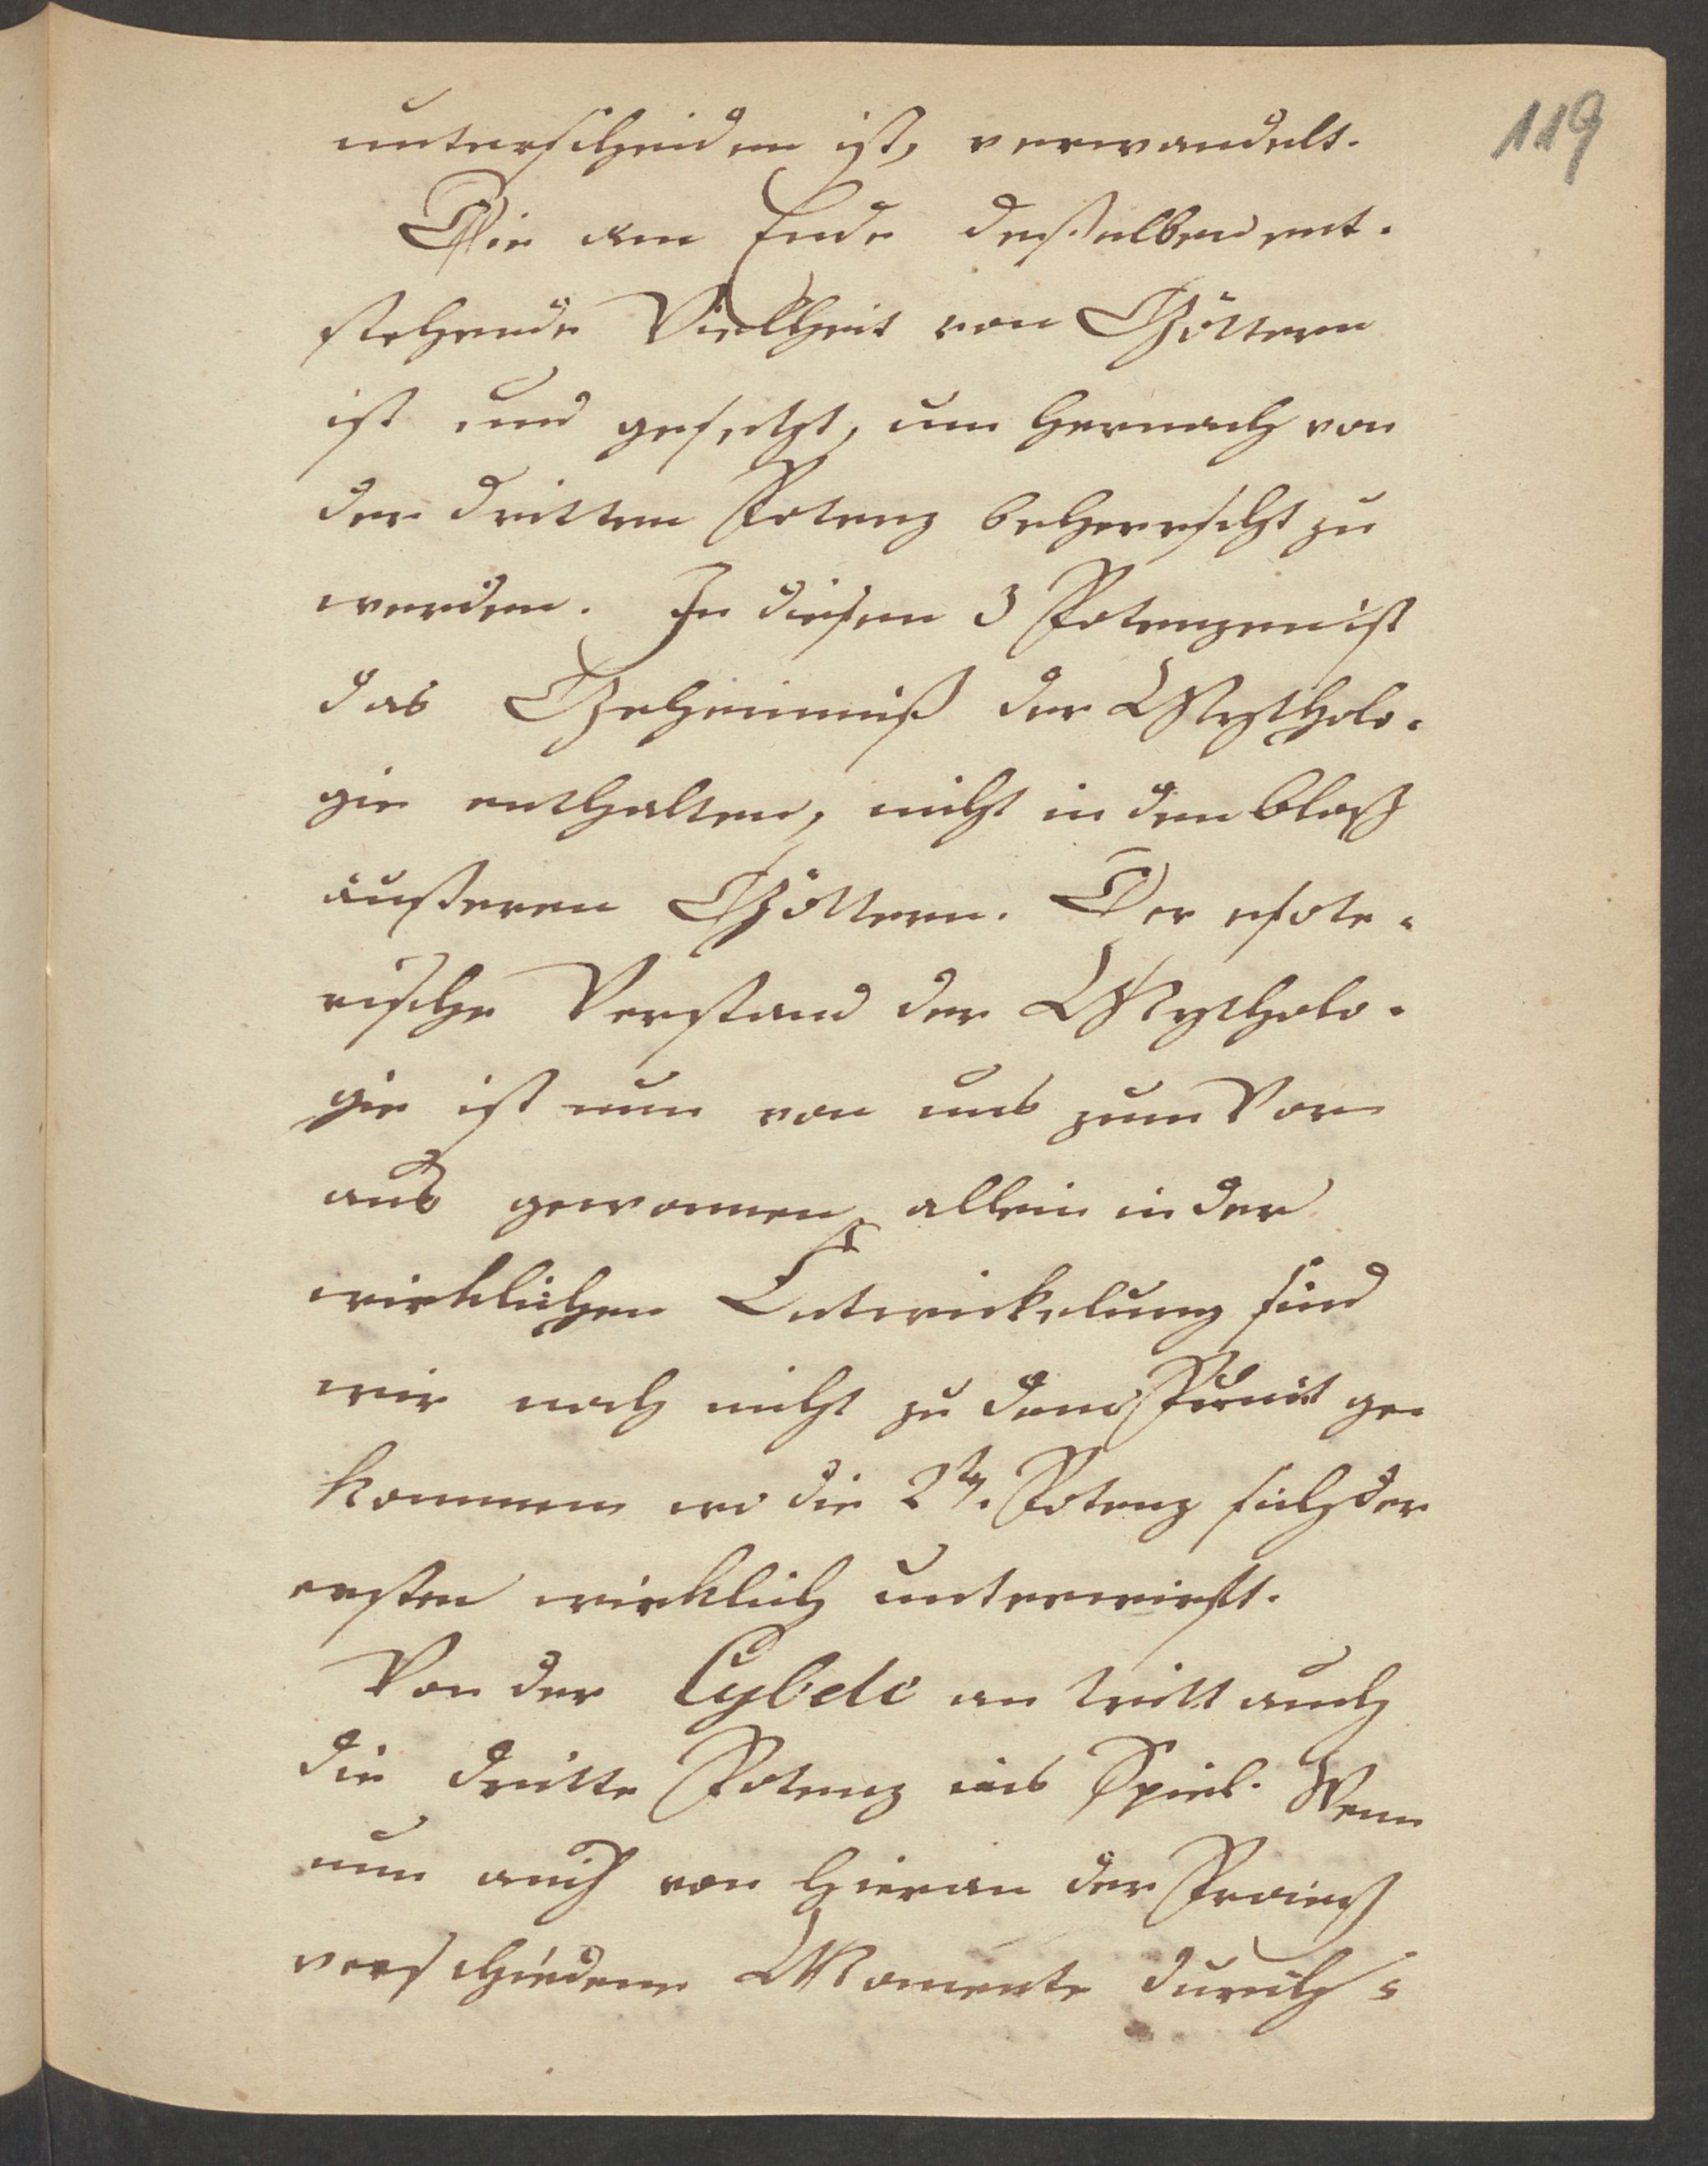 119
unterscheiden ist, verwandelt.
Die am Ende deßelben ent-
stehende Vielheit von Göttern
ist nur gesetzt, um hernach von
der dritten Potenz beherrscht zu
werden. In diesen 3 Potenzen ist
das Geheimniß der Mytholo-
gie enthalten, nicht in den bloß
äußeren Göttern. Der esote-
rische Verstand der Mytholo-
gie ist nun von uns zum Vor
aus gewonnen, allein in der
wirklichen Entwickelung sind
wir noch nicht zu dem Punct ge-
kommen wo die 2te. Potenz sich der
ersten wirklich unterwirft.
Von der Cybele an tritt auch
die dritte Potenz ins Spiel. Wenn
nun auch von hieran der Proceß
verschiedene Momente durch-